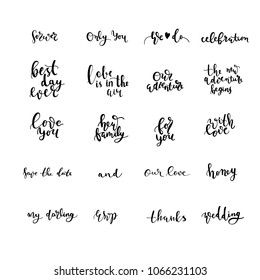 forever
Only You
we do
celebration
best
day
ever
Love
is in the
air
Our
adventure
the new
adventure
begins
love
you
her
family
for
you
with
love
save the date
and
our love
honey
my darling
rsvp
thanks
wedding
shutterstock.com · 1066231103